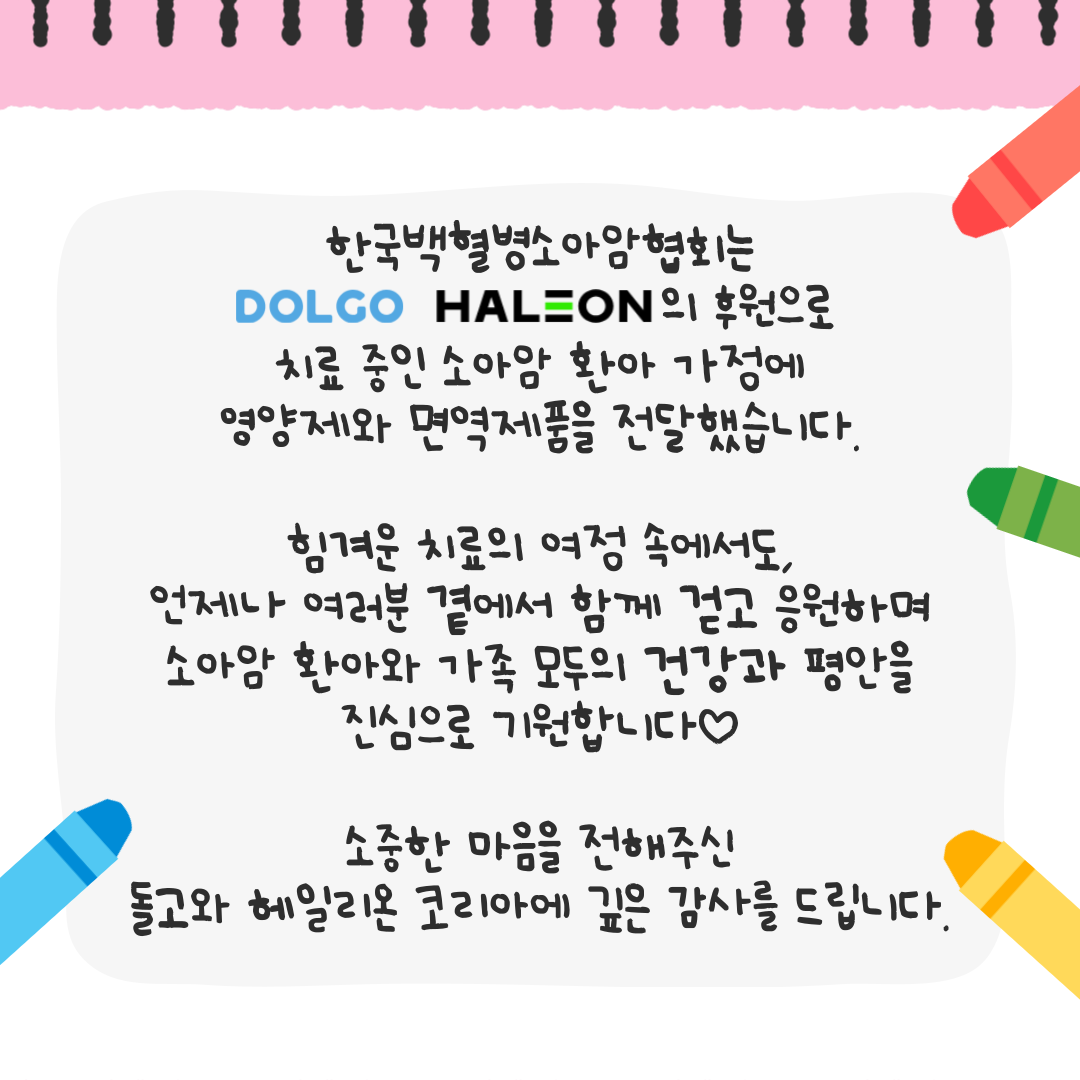 한국백혈병소아암협회는
DOLGO HALEON의 후원으로
치료 중인 소아암 환아 가정에
영양제와 면역제품을 전달했습니다.
힘겨운 치료의 여정 속에서도,
언제나 여러분 곁에서 함께 걷고 응원하며
소아암 환아와 가족 모두의 건강과 평안을
진심으로 기원합니다♡
소중한 마음을 전해주신
돌고와 헤일리온 코리아에 깊은 감사를 드립니다.